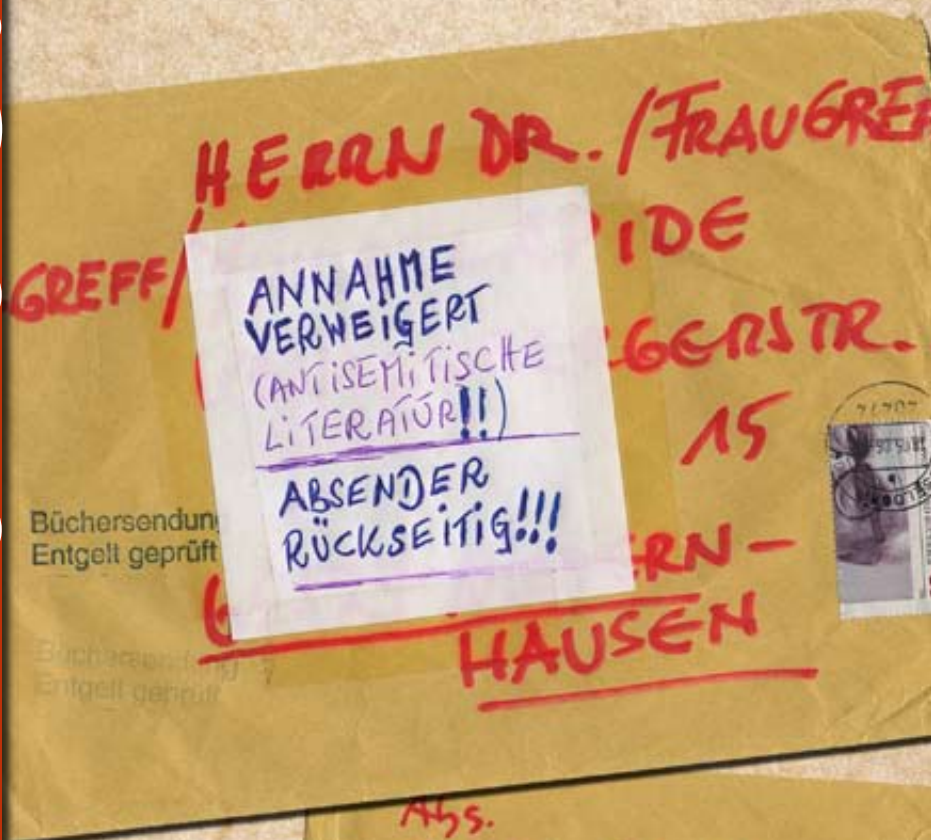 HERRN DR. / FRAU GREF
GREFF/ IDE
GERSTR.
15
ANNAHME
VERWEIGERT
(ANTISEMITISCHE
LITERATUR!!)
ABSENDER
RÜCKSEITIG!!!
Büchersendung
Entgelt geprüft
ERN-
HAUSEN
Büchersendung
Entgelt geprüft
Abs.